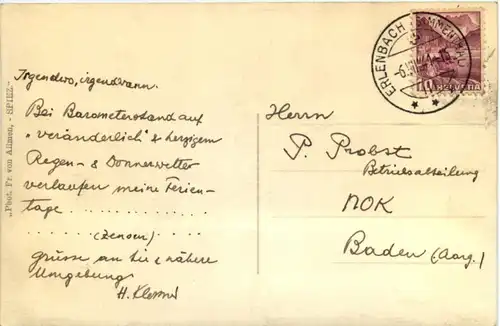 Irgendwo, irgendwann.
Bei Barometerstand auf
"veränderlich" & herzigem
Regen- & Donnerwetter
verlaufen meine Ferien-
tage . . . . . . . . . . . . .
. . . . . . (Zensur) . . . . . .
Grüsse an Sie & nähere
Umgebung
H.
"Phot. Fr. von Allmen, - SPIEZ -"
ERLENBACH (SIMMENTHAL)
10 HELVETIA
Herrn
P. Probst
Betriebsabteilung
NOK
Baden (Aarg.)